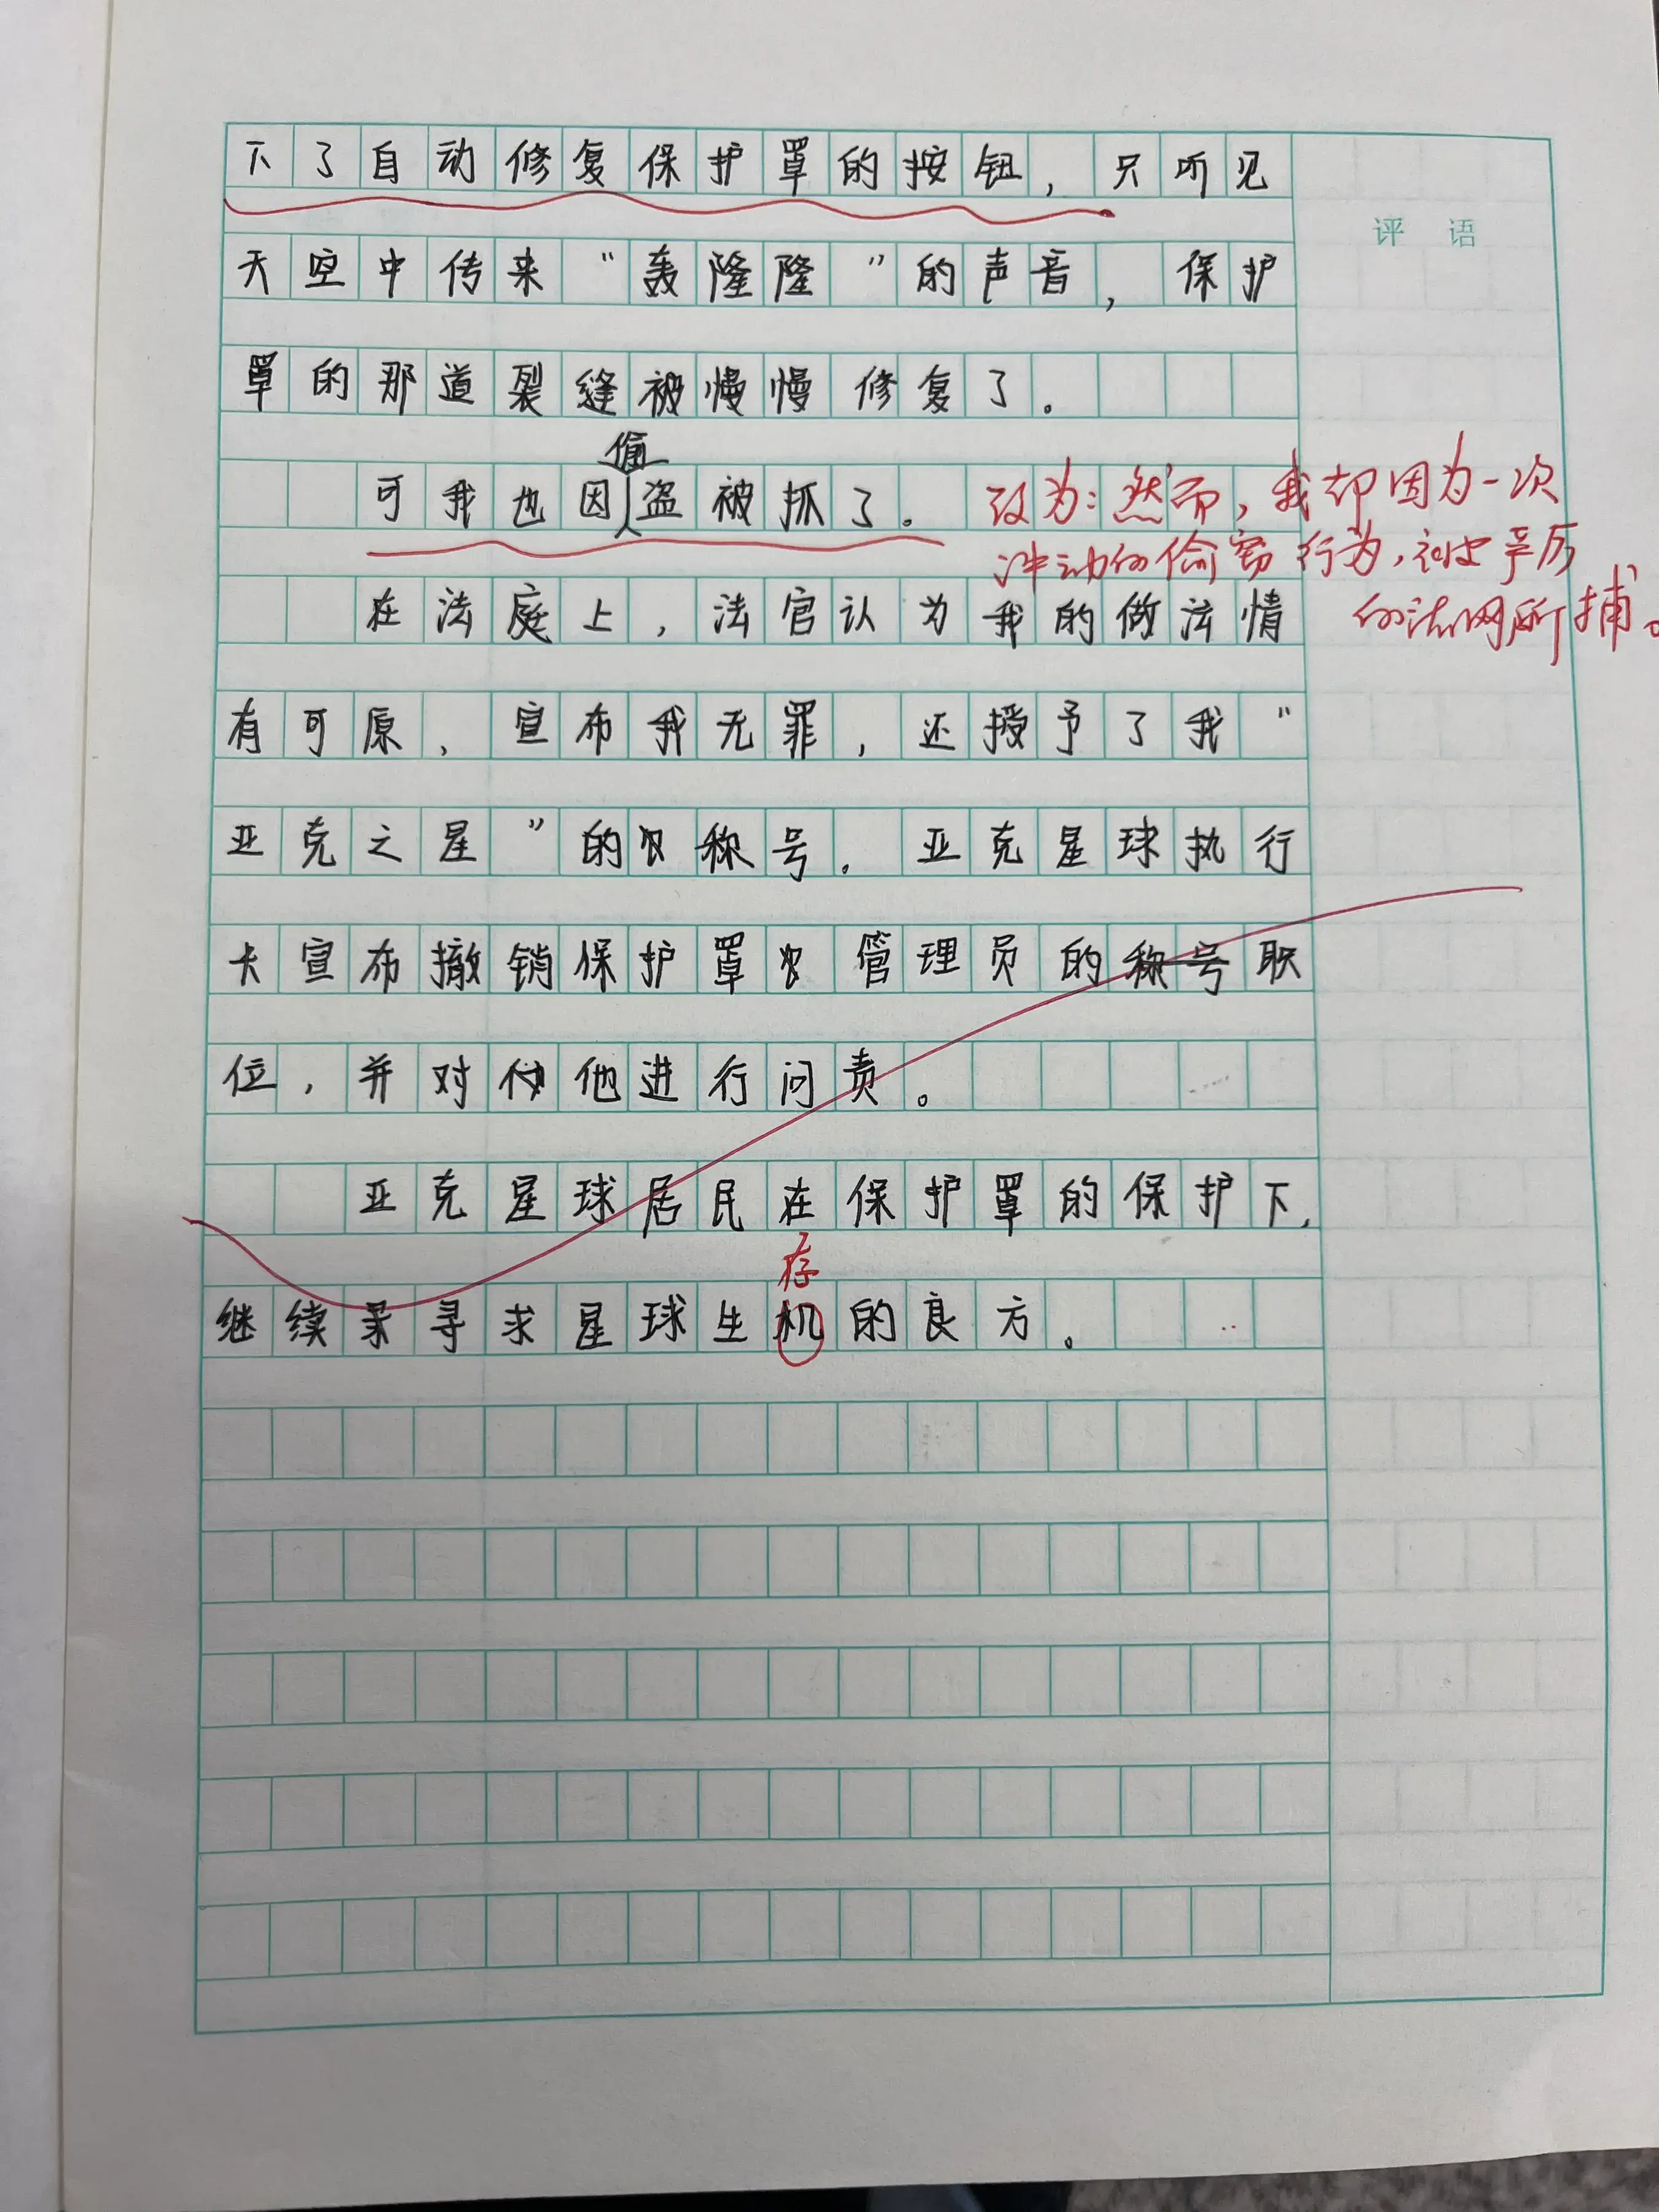 下了自动修复保护罩的按钮，只听见
评 语
天空中传来“轰隆隆”的声音，保护
罩的那道裂缝被慢慢修复了。
偷
可我也因盗被抓了。
改为：然而，我却因为一次
冲动的偷窃行为，被严厉
的法网所捕。
在法庭上，法官认为我的做法情
有可原，宣布我无罪，还授予了我“
亚克之星”的称号。亚克星球执行
卡宣布撤销保护罩管理员的称号职
位，并对他进行问责。
亚克星球居民在保护罩的保护下，
存
继续寻求星球生机的良方。